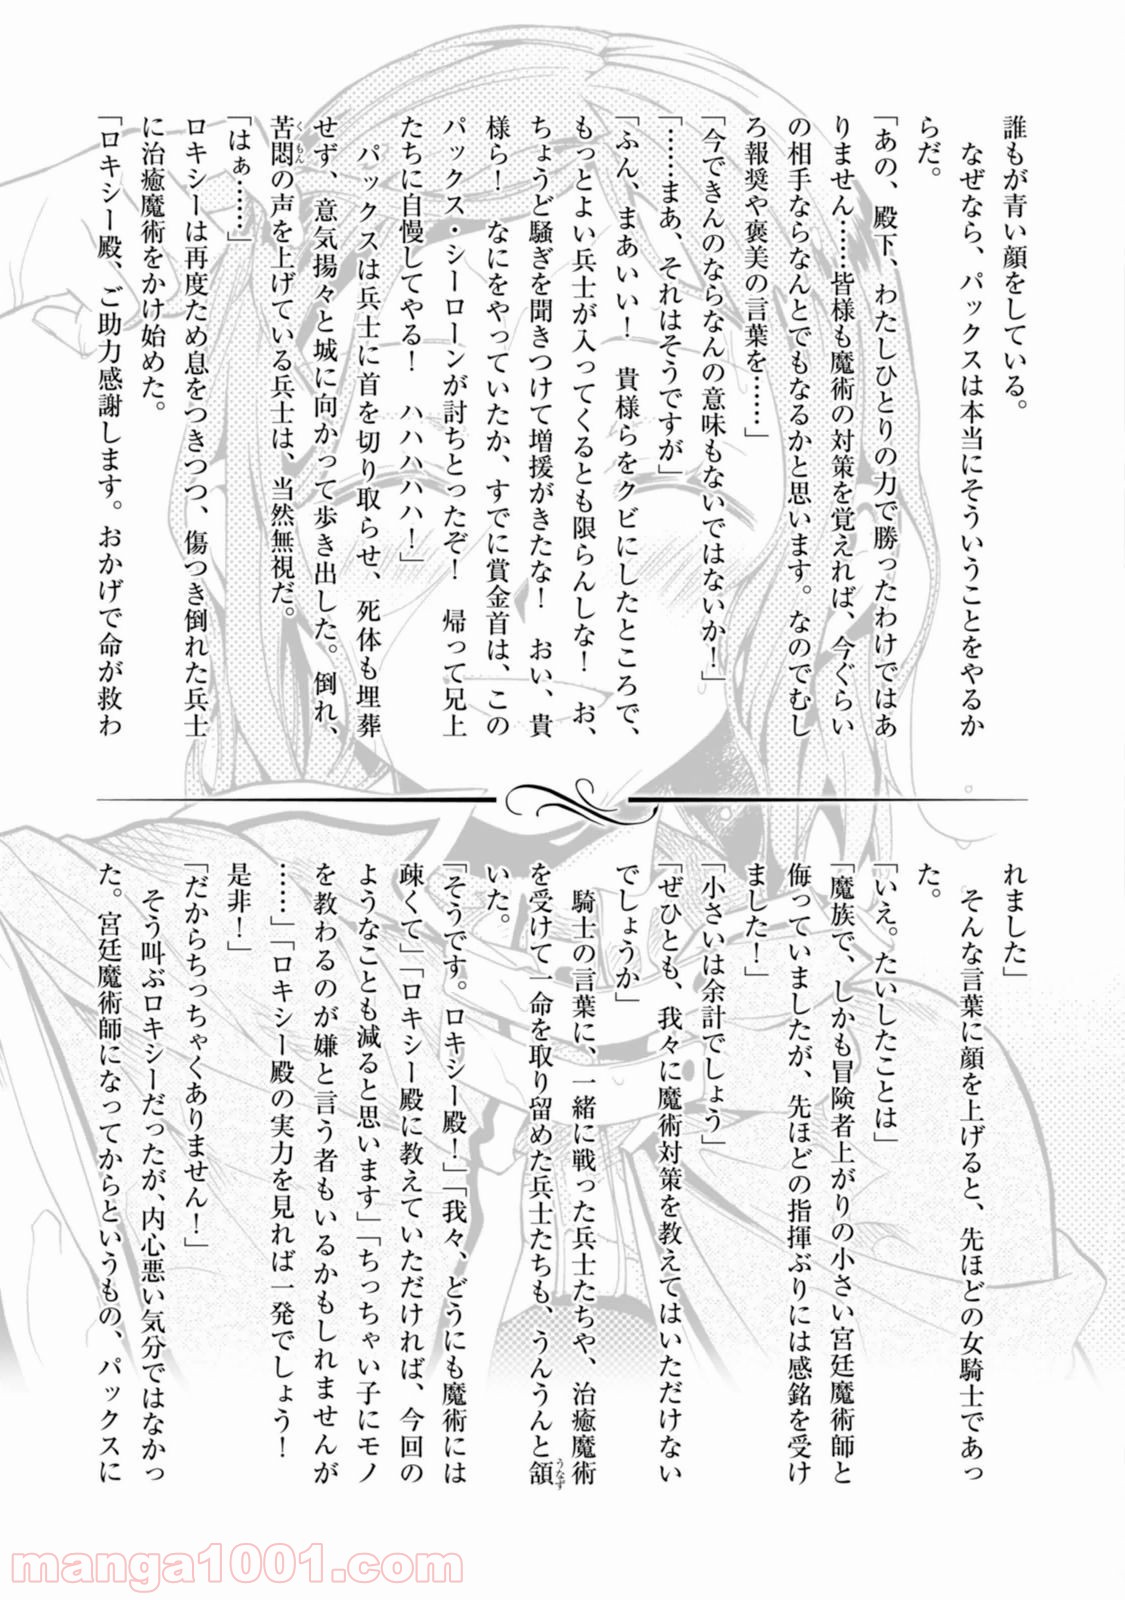 誰もが青い顔をしている。
　なぜなら、パックスは本当にそういうことをやるか
らだ。
「あの、殿下、わたしひとりの力で勝ったわけではあ
りません……皆様も魔術の対策を覚えれば、今ぐらい
の相手ならなんとでもなるかと思います。なのでむし
ろ報奨や褒美の言葉を……」
「今できんのならなんの意味もないではないか！」
「……まあ、それはそうですが」
「ふん、まあいい！　貴様らをクビにしたところで、
もっとよい兵士が入ってくるとも限らんしな！　お、
ちょうど騒ぎを聞きつけて増援がきたな！　おい、貴
様ら！　なにをやっていたか、すでに賞金首は、この
パックス・シーローンが討ちとったぞ！　帰って兄上
たちに自慢してやる！　ハハハハハ！」
　パックスは兵士に首を切り取らせ、死体も埋葬
せず、意気揚々と城に向かって歩き出した。倒れ、
苦悶くもんの声を上げている兵士は、当然無視だ。
「はぁ……」
　ロキシーは再度ため息をつきつつ、傷つき倒れた兵士
に治癒魔術をかけ始めた。
「ロキシー殿、ご助力感謝します。おかげで命が救わ
れました」
　そんな言葉に顔を上げると、先ほどの女騎士であっ
た。
「いえ。たいしたことは」
「魔族で、しかも冒険者上がりの小さい宮廷魔術師と
侮っていましたが、先ほどの指揮ぶりには感銘を受け
ました！」
「小さいは余計でしょう」
「ぜひとも、我々に魔術対策を教えてはいただけない
でしょうか」
　騎士の言葉に、一緒に戦った兵士たちや、治癒魔術
を受けて一命を取り留めた兵士たちも、うんうんと頷うなず
いた。
「そうです。ロキシー殿！」「我々、どうにも魔術には
疎くて」「ロキシー殿に教えていただければ、今回の
ようなことも減ると思います」「ちっちゃい子にモノ
を教わるのが嫌と言う者もいるかもしれませんが
……」「ロキシー殿の実力を見れば一発でしょう！
是非！」
「だからちっちゃくありません！」
　そう叫ぶロキシーだったが、内心悪い気分ではなかっ
た。宮廷魔術師になってからというもの、パックスに
manga1001.com